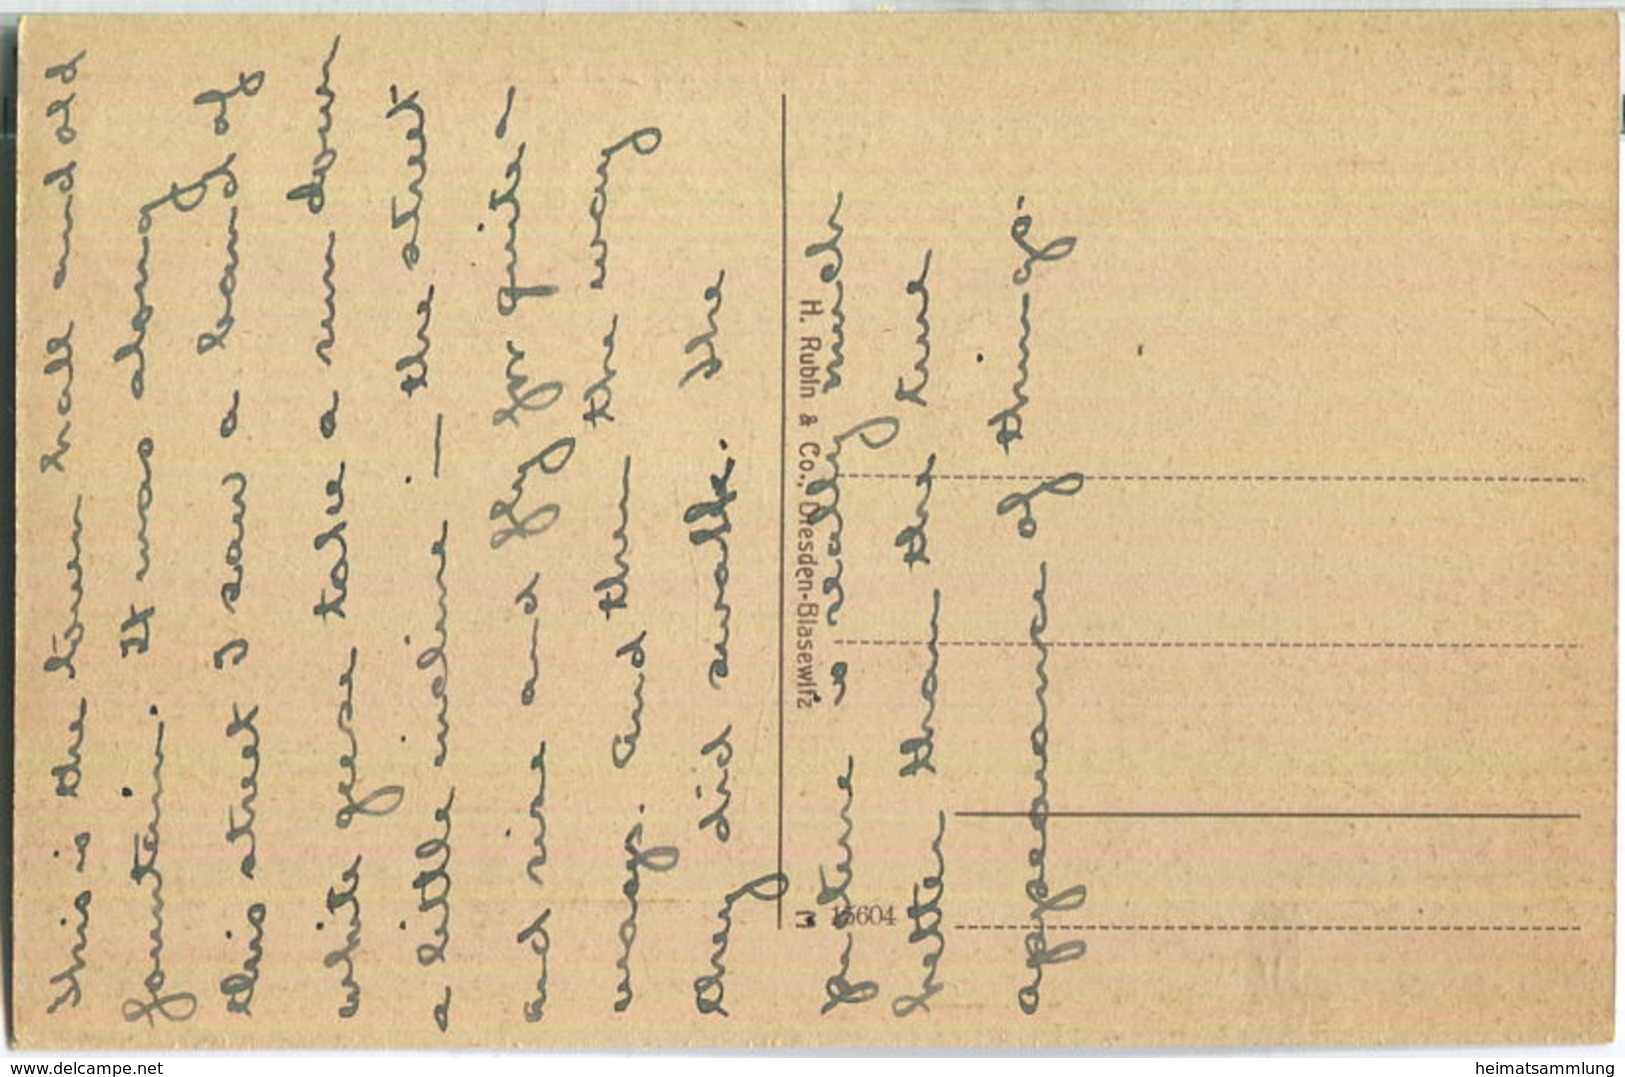 This is the town hall and old
fountain. It was along
this street I saw a band of
white geese take a run down
a little incline — the street
and rise and fly for quite a
ways. And then the way
they did swalk. The
picture is really much
better than the true
appearance of things.
H. Rubin & Co., Dresden-Blasewitz
15604
www.delcampe.net
heimatsammlung